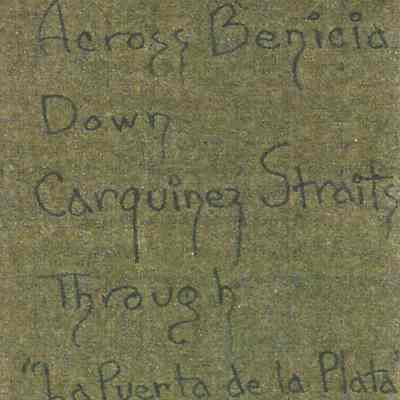 Across Benicia
Down
Carquinez Straits
Through
"La Puerta de la Plata"